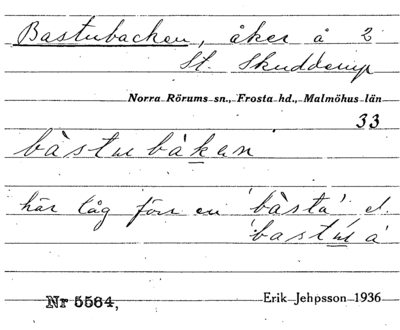 Bastubacken, åker å 2
St. Skudderup
Norra Rörums sn., Frosta hd., Malmöhus län
33
bàstubàkan
här låg förr en 'bàsta' el.
'bastua'
Nr 5564,
Erik Jehpsson 1936